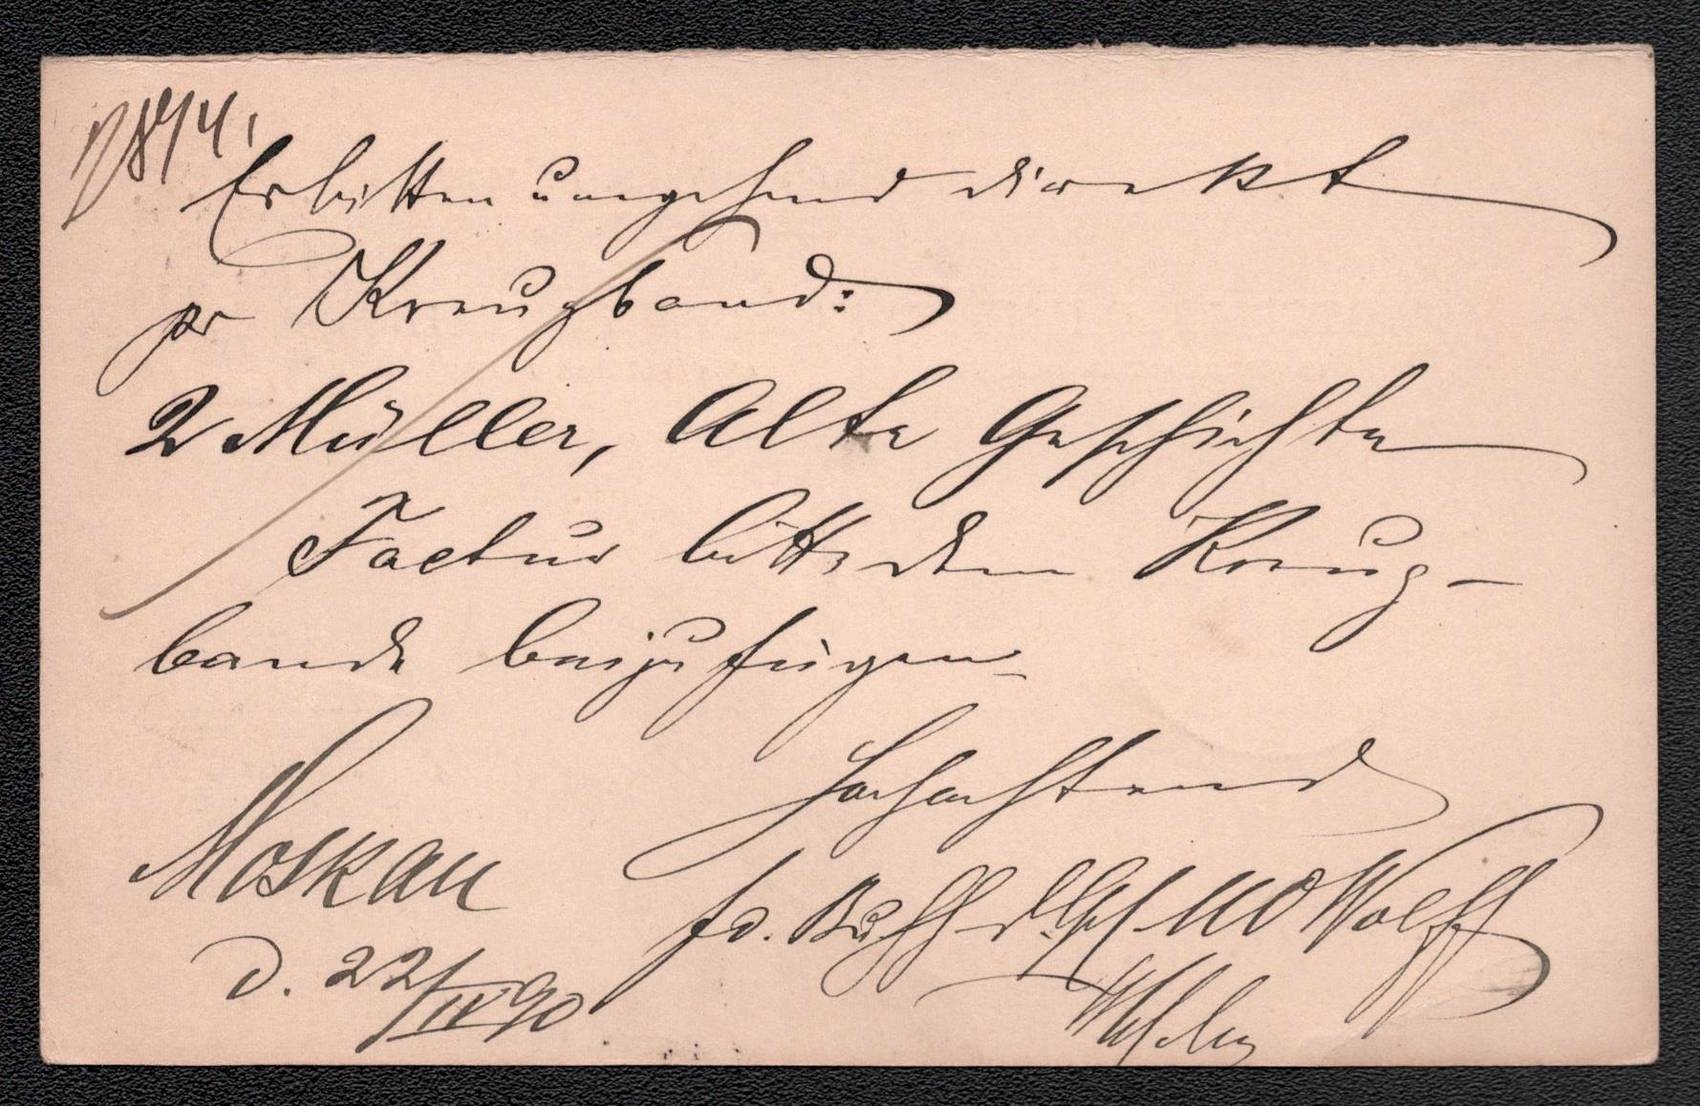 28/4.
Erbitten umgehend direkt
pr Kreuzband:
2 Müller, Alte Geschichte
Factur bitte dem Kreuz-
bande beizufügen
Hochachtend
Moskau
fd. Buchh d. M O Wolff
d. 22/IV 90